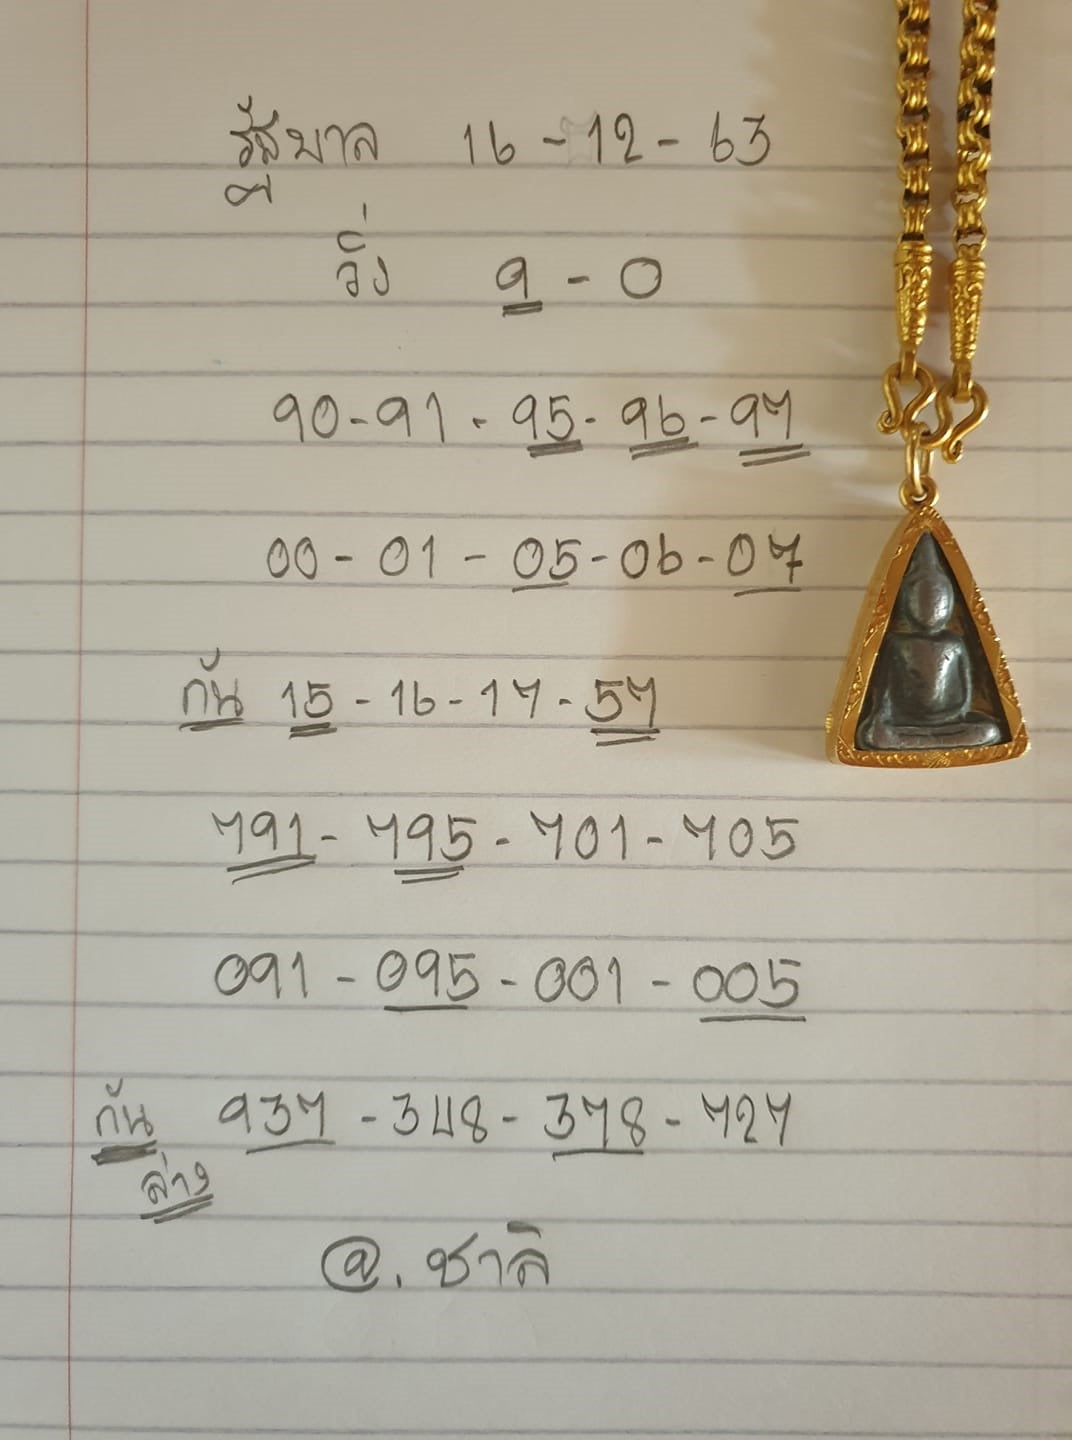 รัฐบาล 16-12-63
วิ่ง 9-0
90-91-95-96-97
00-01-05-06-07
กัน 15-16-17-57
791-795-701-705
091-095-001-005
กัน 937-348-378-727
ล่าง
@. ชาลี